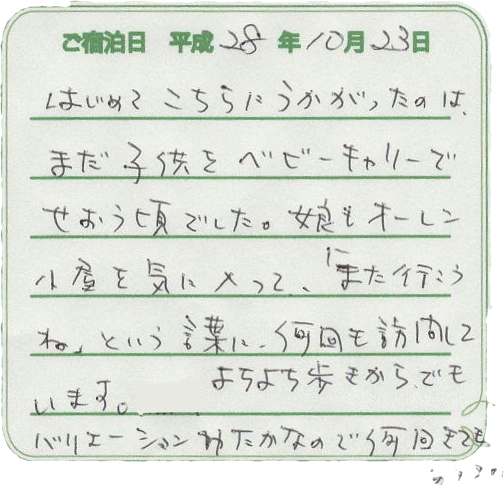 ご宿泊日 平成28年10月23日
はじめて こちらに うかがったのは、
まだ 子供を ベビーキャリーで
せおう頃でした。娘も オーレン
小屋を 気に入って、「また行こう
ね」という 言葉に、何回も 訪問して
います。 よちよち歩きから、でも
バリエーションゆたかなので何回きても